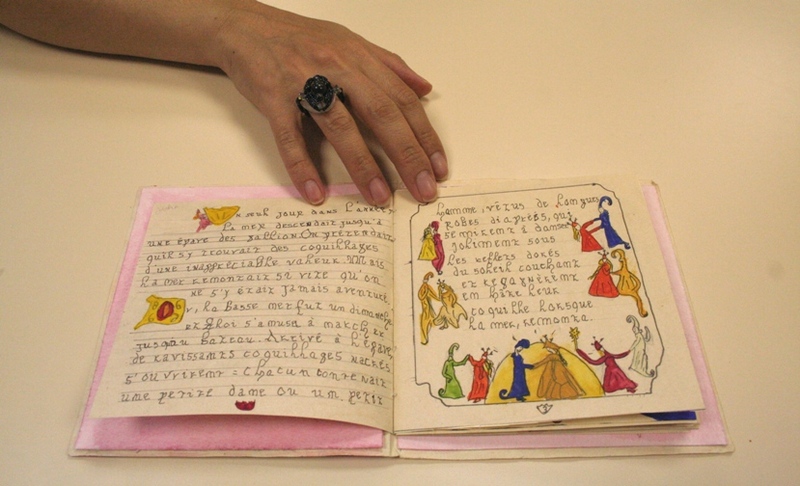 Un seul jour dans l'année,
la mer descendait jusqu'à
une épave des gallion. On prétendait
qu'il s'y trouvait des coquillages
d'une inappréciable valeur. Mais
la mer remontait si vite qu'on
ne s'y était jamais aventuré
Or, la basse mer fut un dimanche
et Gloi s'amusa à marcher
jusqu'au bateau. Arrivé à l'épave
de ravissants coquillages nacrés
s'ouvrirent = Chacun contenait
une petite dame ou un petit
homme, vêtus de longues
robes diaprés, qui
se mirent à danser
joliment sous
les reflets dorés
du soleil couchant
et regagnèrent
en hâte leur
coquille lorsque
la mer, remonta.
3